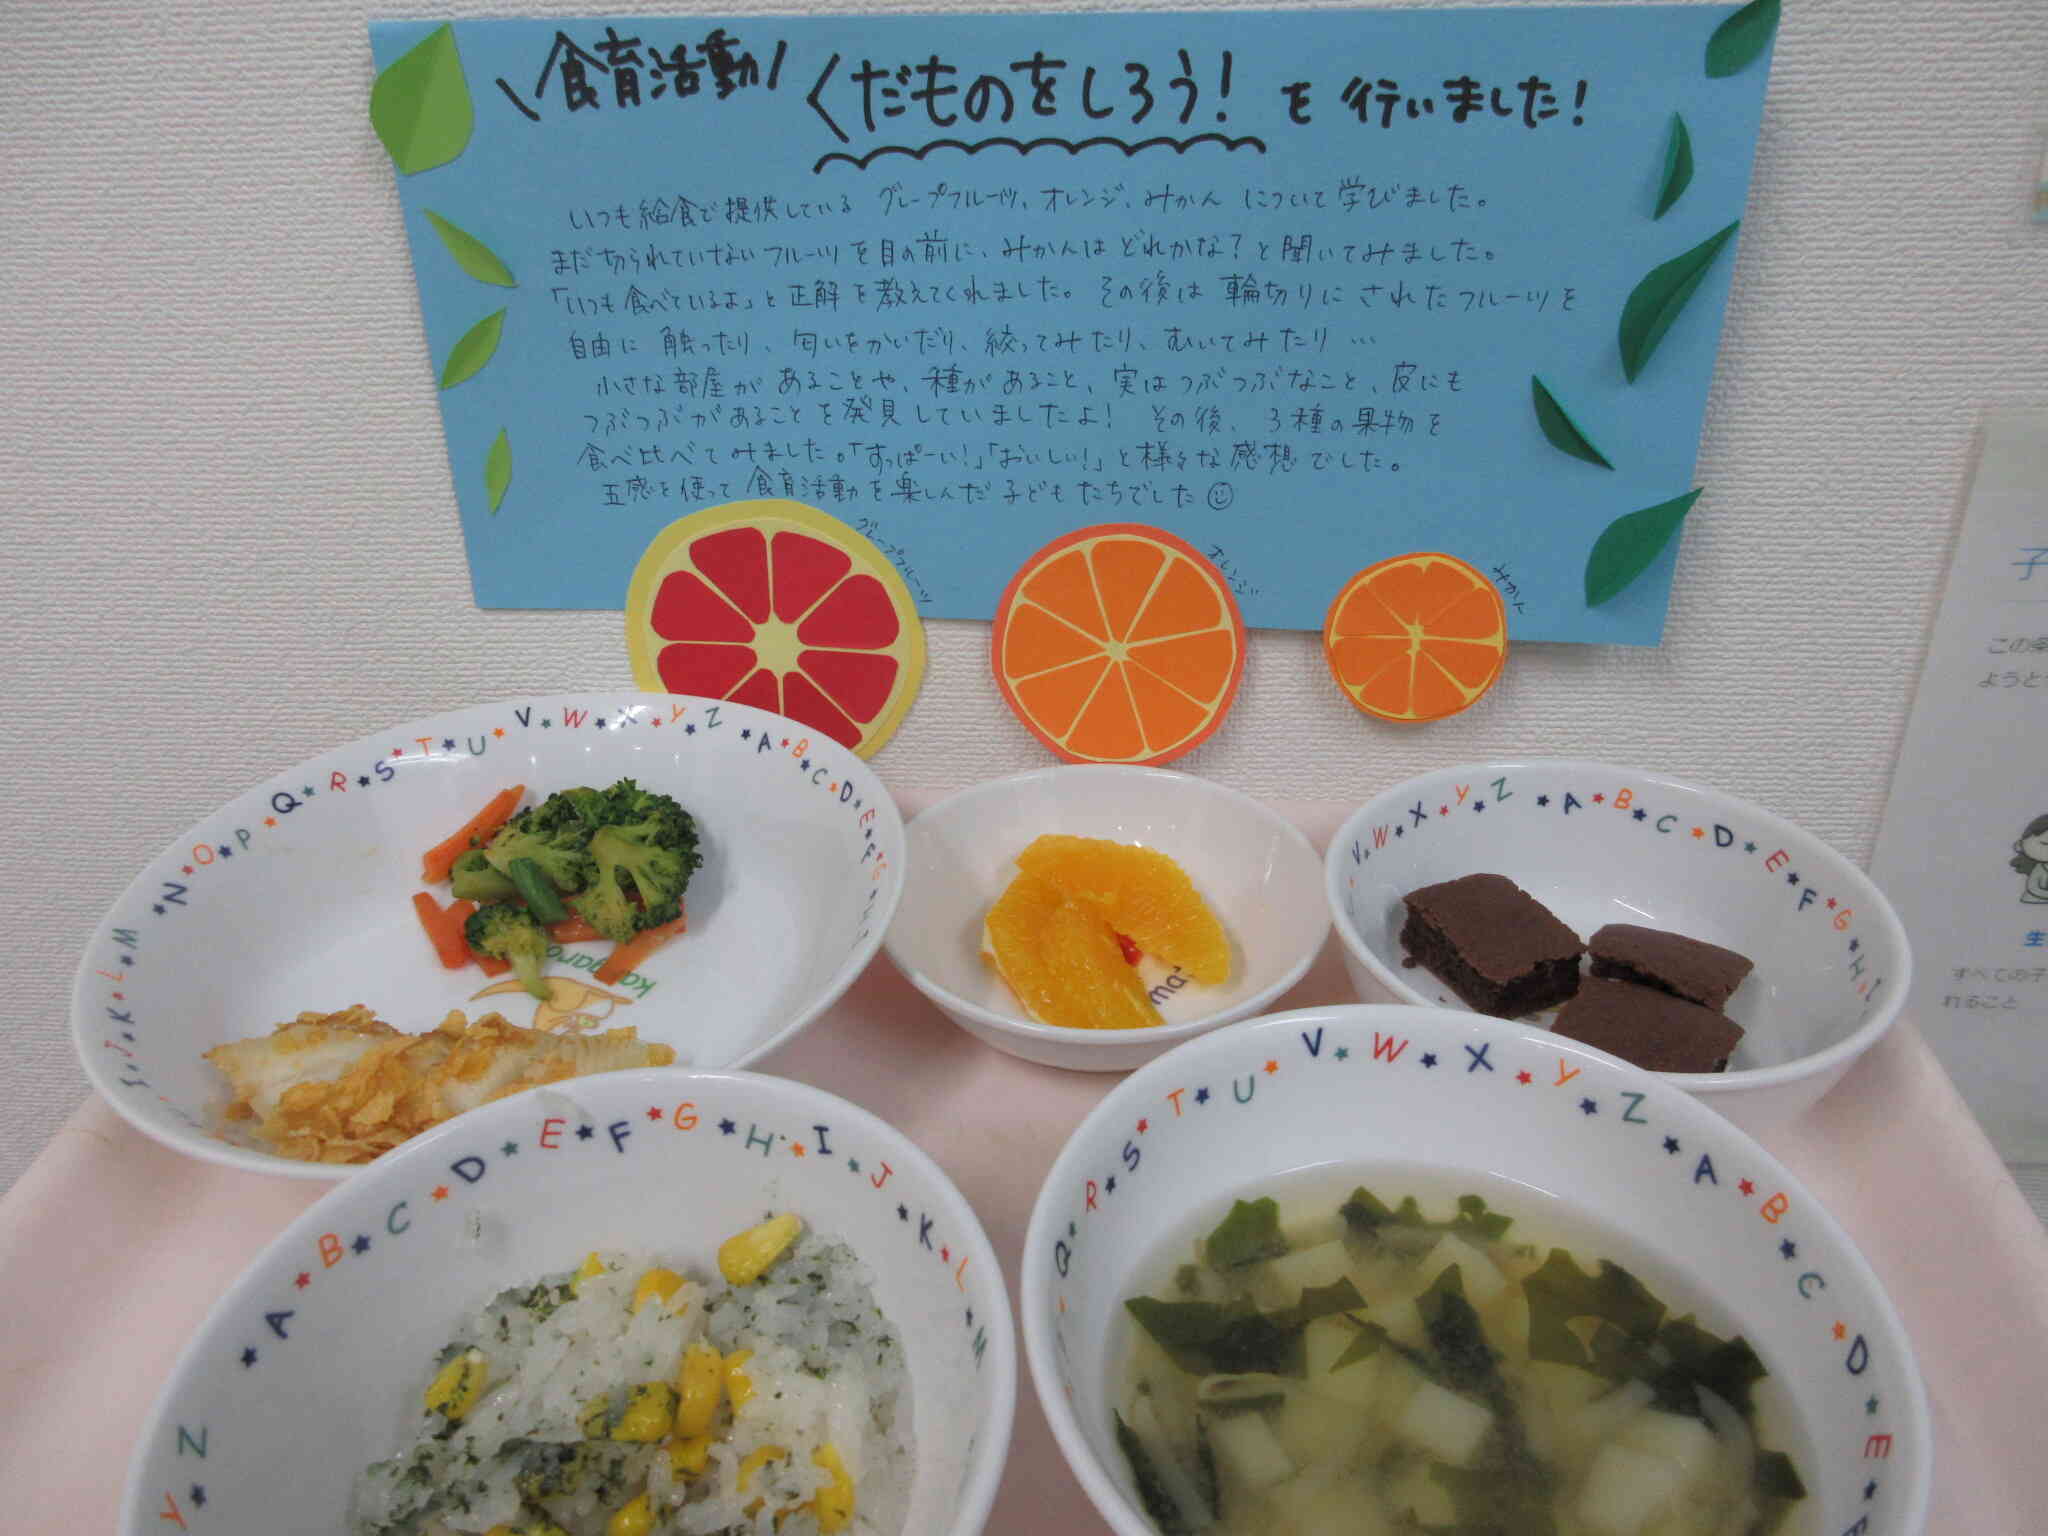 食育活動 くだものをしろう! を行いました!
いつも給食で提供している グレープフルーツ、オレンジ、みかん について学びました。
まだ切られていないフルーツを目の前に、みかんはどれかな?と聞いてみました。
「いつも食べているよ」と正解を教えてくれました。その後は輪切りにされたフルーツを
自由に触ったり、匂いをかいだり、絞ってみたり、むいてみたり…
小さな部屋があることや、種があること、実はつぶつぶなこと、皮にも
つぶつぶがあることを発見していましたよ! その後、3種の果物を
食べ比べてみました。「すっぱーい!」「おいしい!」と様々な感想でした。
五感を使って食育活動を楽しんだ子どもたちでした
グレープフルーツ
オレンジ
みかん
子
この条
ようと
生
すべての子
れること
N O P Q R S T U V W X Y Z A B C D E F G
V W X Y Z A B C D E F G H I
A B C D E F G H I J K L M
Y Z
Q R S T U V W X Y Z A B C D E